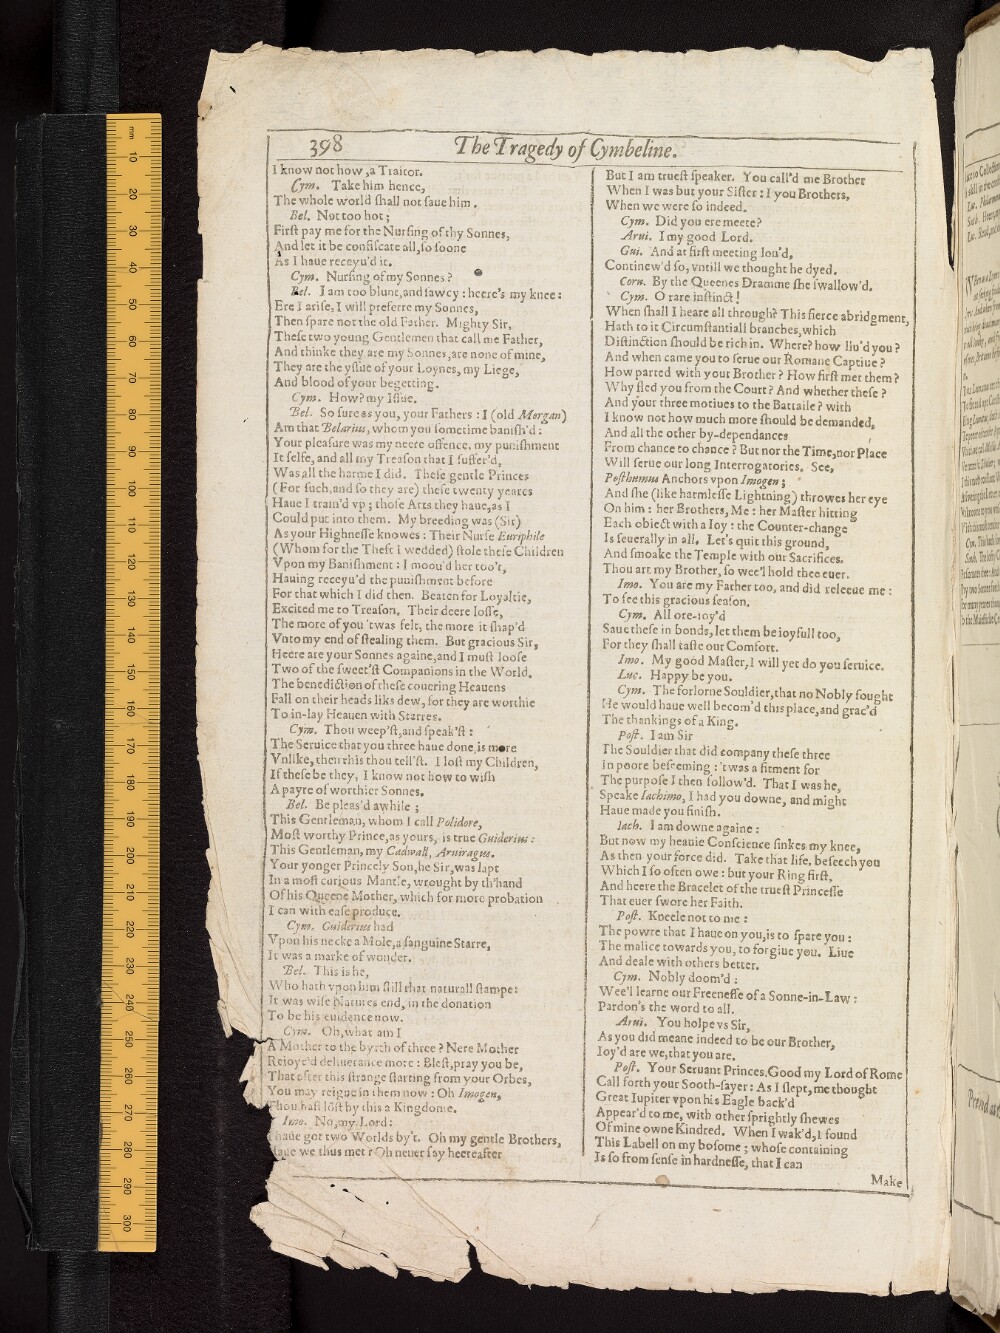 398
The Tragedy of Cymbeline.
I know not how, a Traitor.
Cym. Take him hence,
The whole world ſhall not ſaue him.
Bel. Not too hot;
Firſt pay me for the Nurſing of thy Sonnes,
And let it be confiſcate all, ſo ſoone
As I haue receyu'd it.
Cym. Nurſing of my Sonnes?
Bel. I am too blunt, and ſawcy: heere's my knee:
Ere I ariſe, I will preferre my Sonnes,
Then ſpare not the old Father. Mighty Sir,
Theſe two young Gentlemen that call me Father,
And thinke they are my Sonnes, are none of mine,
They are the yſſue of your Loynes, my Liege,
And blood of your begetting.
Cym. How? my Iſſue.
Bel. So ſure as you, your Fathers: I (old Morgan)
Am that Belarius, whom you ſometime baniſh'd:
Your pleaſure was my neere offence, my puniſhment
It ſelfe, and all my Treaſon that I ſuffer'd,
Was all the harme I did. Theſe gentle Princes
(For ſuch, and ſo they are) theſe twenty yeares
Haue I train'd vp; thoſe Arts they haue, as I
Could put into them. My breeding was (Sir)
As your Highneſſe knowes: Their Nurſe Euriphile
(Whom for the Theft I wedded) ſtole theſe Children
Vpon my Baniſhment: I moou'd her too't,
Hauing receyu'd the puniſhment before
For that which I did then. Beaten for Loyaltie,
Excited me to Treaſon. Their deere loſſe,
The more of you 'twas felt, the more it ſhap'd
Vnto my end of ſtealing them. But gracious Sir,
Heere are your Sonnes againe, and I muſt looſe
Two of the ſweet'ſt Companions in the World.
The benediction of theſe couering Heauens
Fall on their heads liks dew, for they are worthie
To in-lay Heauen with Starres.
Cym. Thou weep'ſt, and ſpeak'ſt:
The Seruice that you three haue done, is more
Vnlike, then this thou tell'ſt. I loſt my Children,
If theſe be they, I know not how to wiſh
A payre of worthier Sonnes.
Bel. Be pleas'd awhile;
This Gentleman, whom I call Polidore,
Moſt worthy Prince, as yours, is true Guiderius:
This Gentleman, my Cadwall, Aruiragus.
Your yonger Princely Son, he Sir, was lapt
In a moſt curious Mantle, wrought by th'hand
Of his Queene Mother, which for more probation
I can with eaſe produce.
Cym. Guiderius had
Vpon his necke a Mole, a ſanguine Starre,
It was a marke of wonder.
Bel. This is he,
Who hath vpon him ſtill that naturall ſtampe:
It was wiſe Natures end, in the donation
To be his euidence now.
Cym. Oh, what am I
A Mother to the byrth of three? Nere Mother
Reioyc'd deliuerance more: Bleſt, pray you be,
That after this ſtrange ſtarting from your Orbes,
You may reigne in them now: Oh Imogen,
Thou haſt loſt by this a Kingdome.
Imo. No, my Lord:
I haue got two Worlds by't. Oh my gentle Brothers,
Haue we thus met? Oh neuer ſay heereafter
But I am trueſt ſpeaker. You call'd me Brother
When I was but your Siſter: I you Brothers,
When we were ſo indeed.
Cym. Did you ere meete?
Arui. I my good Lord.
Gui. And at firſt meeting lou'd,
Continew'd ſo, vntill we thought he dyed.
Corn. By the Queenes Dramme ſhe ſwallow'd.
Cym. O rare inſtinct!
When ſhall I heare all through? This fierce abridgment,
Hath to it Circumſtantiall branches, which
Diſtinction ſhould be rich in. Where? how liu'd you?
And when came you to ſerue our Romane Captiue?
How parted with your Brother? How firſt met them?
Why fled you from the Court? And whether theſe?
And your three motiues to the Battaile? with
I know not how much more ſhould be demanded,
And all the other by-dependances
From chance to chance? But nor the Time, nor Place
Will ſerue our long Interrogatories. See,
Poſthumus Anchors vpon Imogen;
And ſhe (like harmleſſe Lightning) throwes her eye
On him: her Brothers, Me: her Maſter hitting
Each obiect with a Ioy: the Counter-change
Is ſeuerally in all. Let's quit this ground,
And ſmoake the Temple with our Sacrifices.
Thou art my Brother, ſo wee'l hold thee euer.
Imo. You are my Father too, and did releeue me:
To ſee this gracious ſeaſon.
Cym. All ore-ioy'd
Saue theſe in bonds, let them be ioyfull too,
For they ſhall taſte our Comfort.
Imo. My good Maſter, I will yet do you ſeruice.
Luc. Happy be you.
Cym. The forlorne Souldier, that no Nobly fought
He would haue well becom'd this place, and grac'd
The thankings of a King.
Poſt. I am Sir
The Souldier that did company theſe three
In poore beſeeming: 'twas a fitment for
The purpoſe I then follow'd. That I was he,
Speake Iachimo, I had you downe, and might
Haue made you finiſh.
Iach. I am downe againe:
But now my heauie Conſcience ſinkes my knee,
As then your force did. Take that life, beſeech you
Which I ſo often owe: but your Ring firſt,
And heere the Bracelet of the trueſt Princeſſe
That euer ſwore her Faith.
Poſt. Kneele not to me:
The powre that I haue on you, is to ſpare you:
The malice towards you, to forgiue you. Liue
And deale with others better.
Cym. Nobly doom'd:
Wee'l learne our Freeneſſe of a Sonne-in-Law:
Pardon's the word to all.
Arui. You holpe vs Sir,
As you did meane indeed to be our Brother,
Ioy'd are we, that you are.
Poſt. Your Seruant Princes. Good my Lord of Rome
Call forth your Sooth-ſayer: As I ſlept, me thought
Great Iupiter vpon his Eagle back'd
Appear'd to me, with other ſprightly ſhewes
Of mine owne Kindred. When I wak'd, I found
This Labell on my boſome; whoſe containing
Is ſo from ſenſe in hardneſſe, that I can
Make
mm
10
20
30
40
50
60
70
80
90
100
110
120
130
140
150
160
170
180
190
200
210
220
230
240
250
260
270
280
290
300